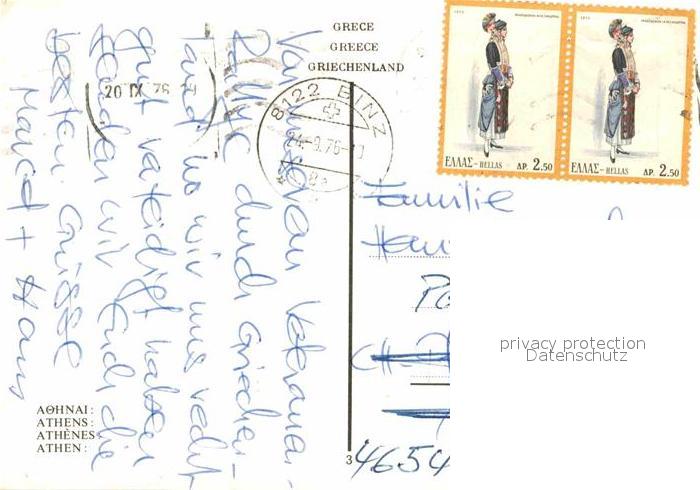 GRECE
GREECE
GRIECHENLAND
ΕΛΛΑΣ-HELLAS ΔΡ. 2.50
ΕΛΛΑΣ-HELLAS ΔΡ. 2.50
20 IX 76
8122 BINZ
9.76
Von Veteranen-
Rallye durch Griechen-
land wo wir uns recht
gut verteidigt haben
senden wir Euch die
besten Grüsse
Marcel + Hans
Familie
privacy protection
Datenschutz
CH
4654
ΑΘΗΝΑΙ:
ATHENS:
ATHÈNES:
ATHEN:
3